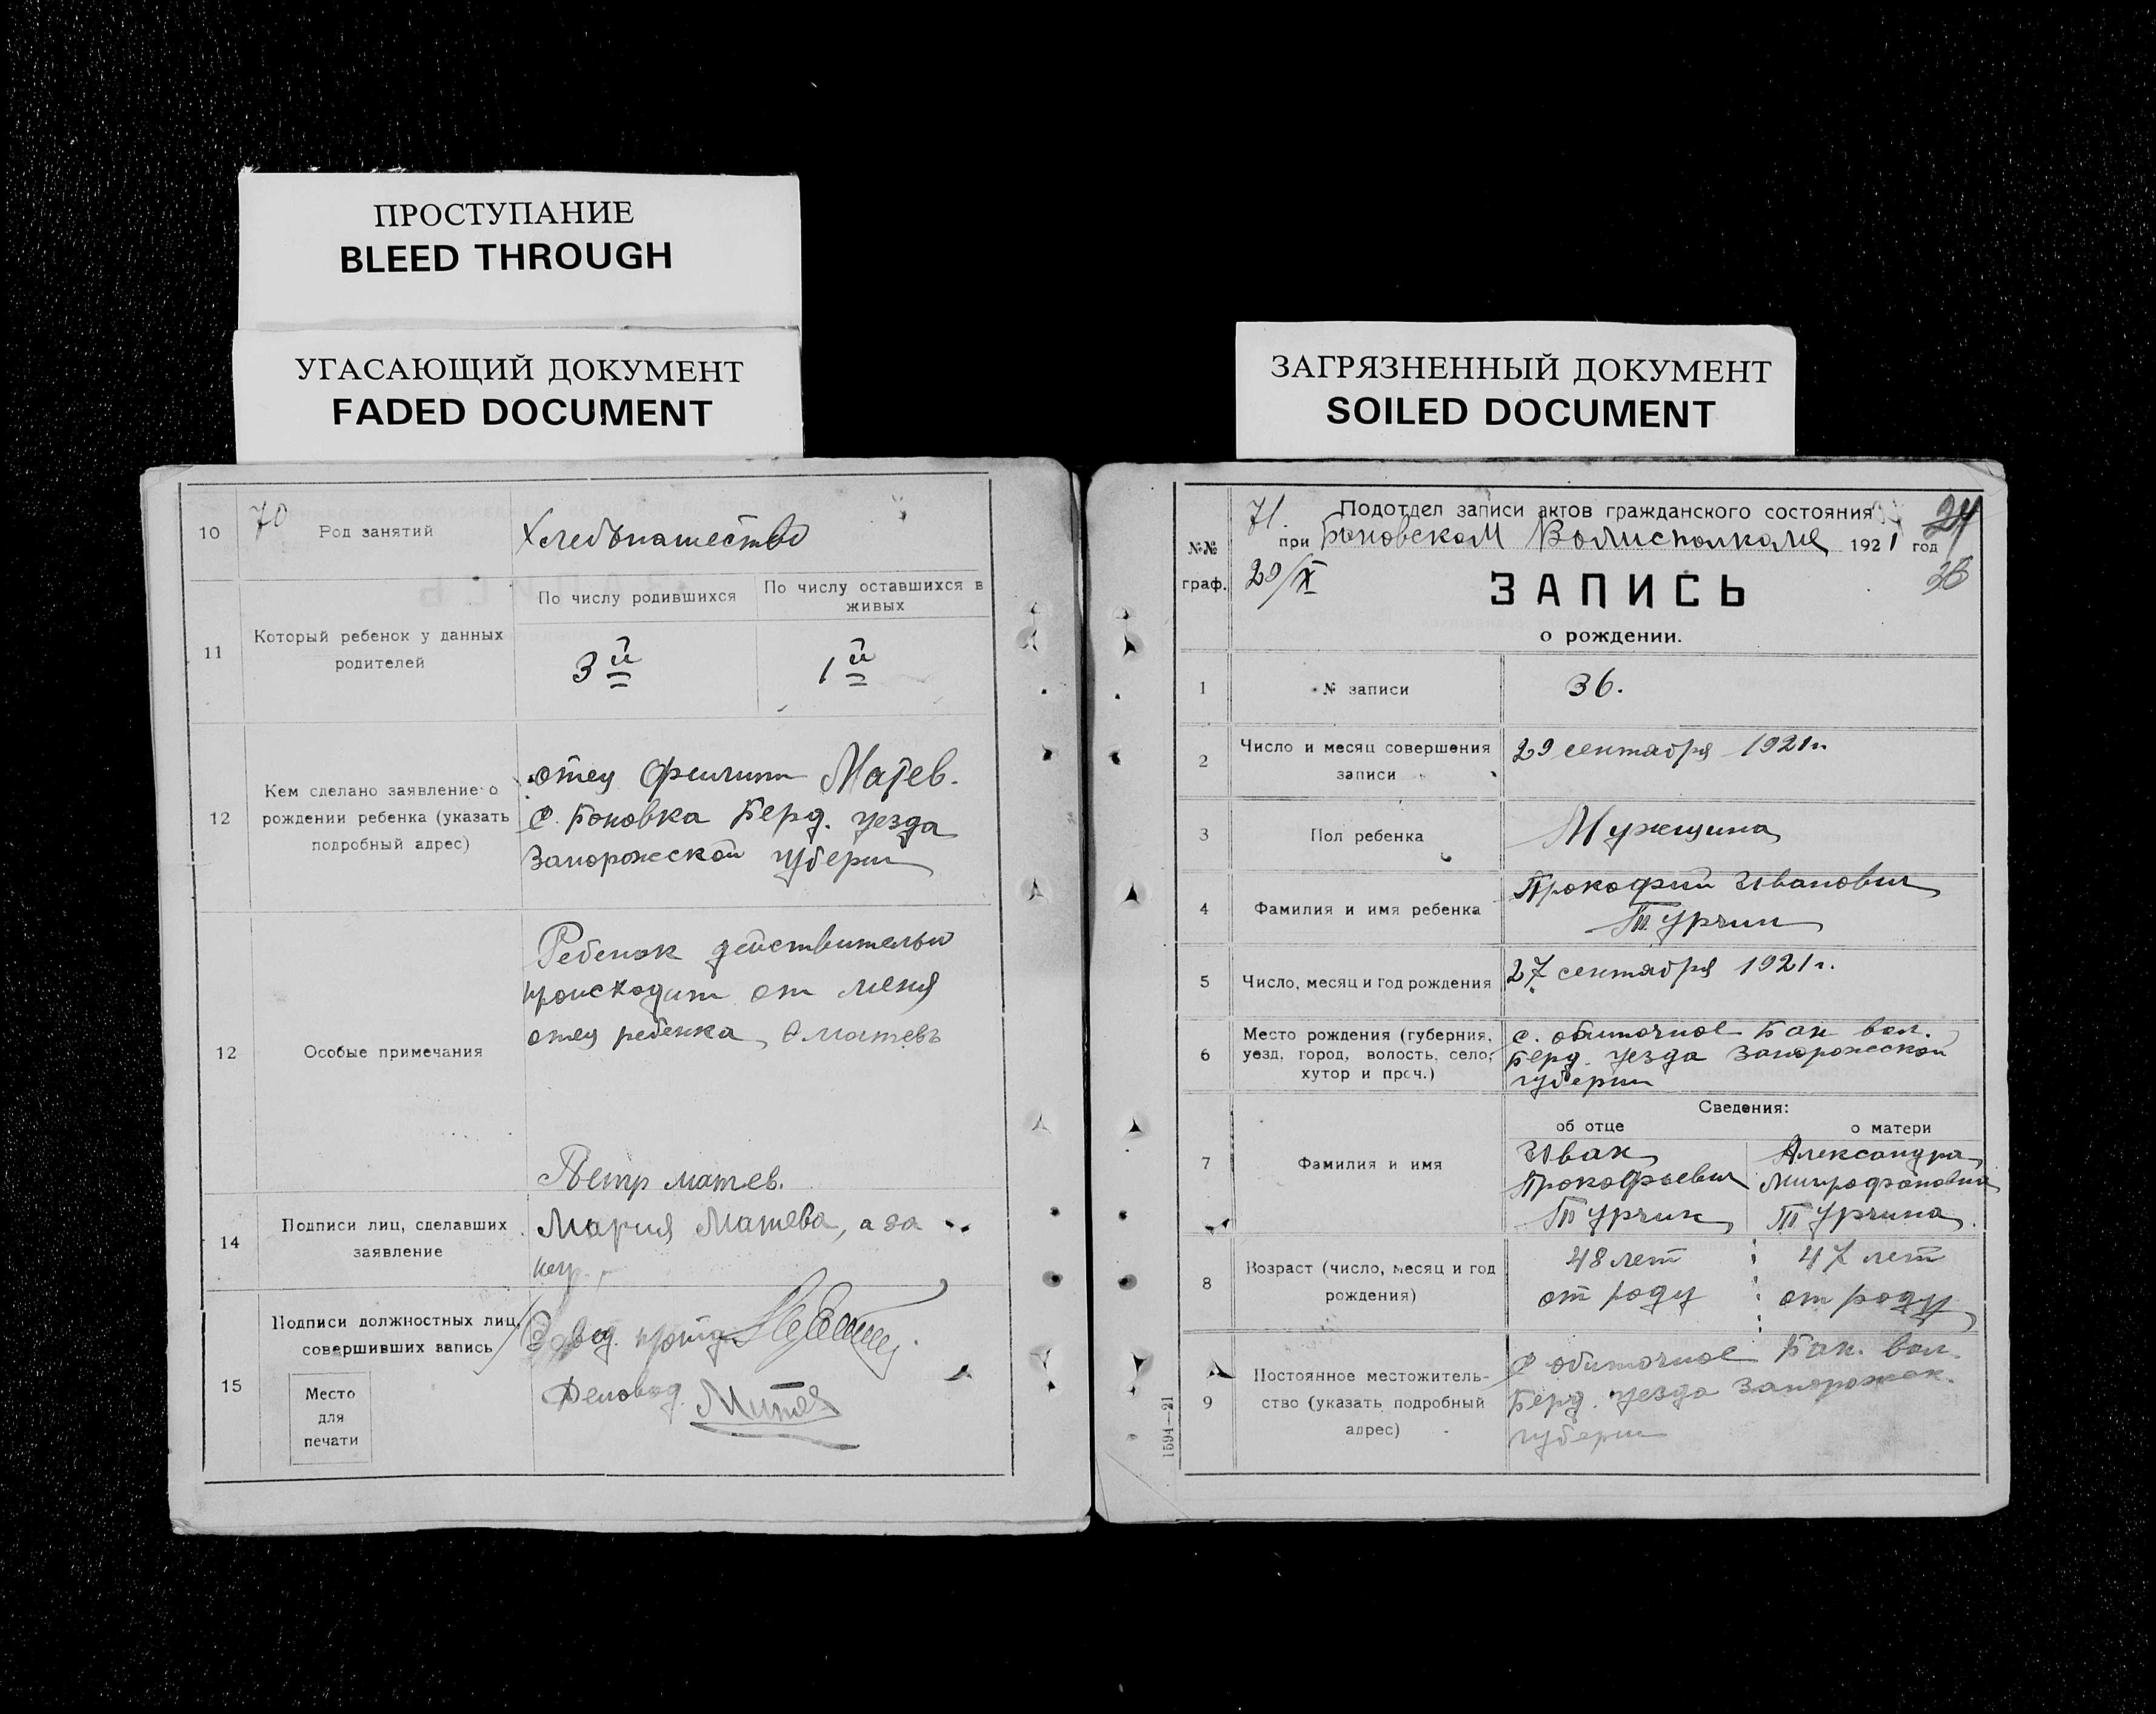 ПРОСТУПАНИЕ
BLEED THROUGH
УГАСАЮЩИЙ ДОКУМЕНТ
FADED DOCUMENT
10
70
Род занятий
Хлебопашество
11
Который ребенок у данных
родителей
По числу родившихся
По числу оставшихся в
живых
3 й
1 й
12
Кем сделано заявление о
рождении ребенка (указать
подробный адрес)
отец Филипп Матев.
с. Боновка Берд. уезда
Запорожской губерни
12
Особые примечания
Ребенок действительно
происходит от меня
отец ребенка, Ф матевъ
Петр матев.
14
Подписи лиц, сделавших
заявление
Мария Матева, а за
15
Подписи должностных лиц,
совершивших запись
Место
для
печати
Деловод.
ЗАГРЯЗНЕННЫЙ ДОКУМЕНТ
SOILED DOCUMENT
№№
граф.
71.
Подотдел записи актов гражданского состояния
24
при Боновском Волисполкоме 1921 год
29/IX
ЗАПИСЬ
о рождении.
1
№ записи
36.
2
Число и месяц совершения
записи
29 сентября 1921 г.
3
Пол ребенка
Мужщина
4
Фамилия и имя ребенка
Прокофий Иванович
Турчин
5
Число, месяц и год рождения
27 сентября 1921 г.
6
Место рождения (губерния,
уезд, город, волость, село,
хутор и проч.)
с. обиточное Бан вол.
Берд. уезда Запорожской
губерни
7
Фамилия и имя
Сведения:
об отце
о матери
Иван
Прокофьевич
Турчин
Александра
Митрофановна
Турчина.
8
Возраст (число, месяц и год
рождения)
48 лет
от роду
47 лет
от роду
9
Постоянное местожитель-
ство (указать подробный
адрес)
с обиточное Бан. вол.
Берд. уезда Запорожск.
губерни
1594—21